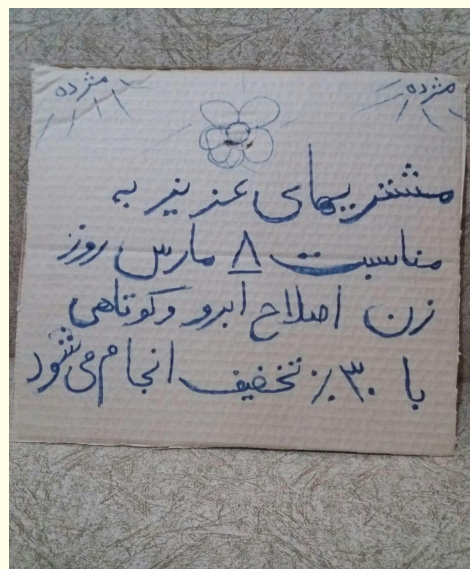 مژده
مژده
مشتریهای عزیز به
مناسبت ۸ مارس روز
زن اصلاح ابرو وکوتاهی
با ۳۰٪ تخفیف انجام می‌شود